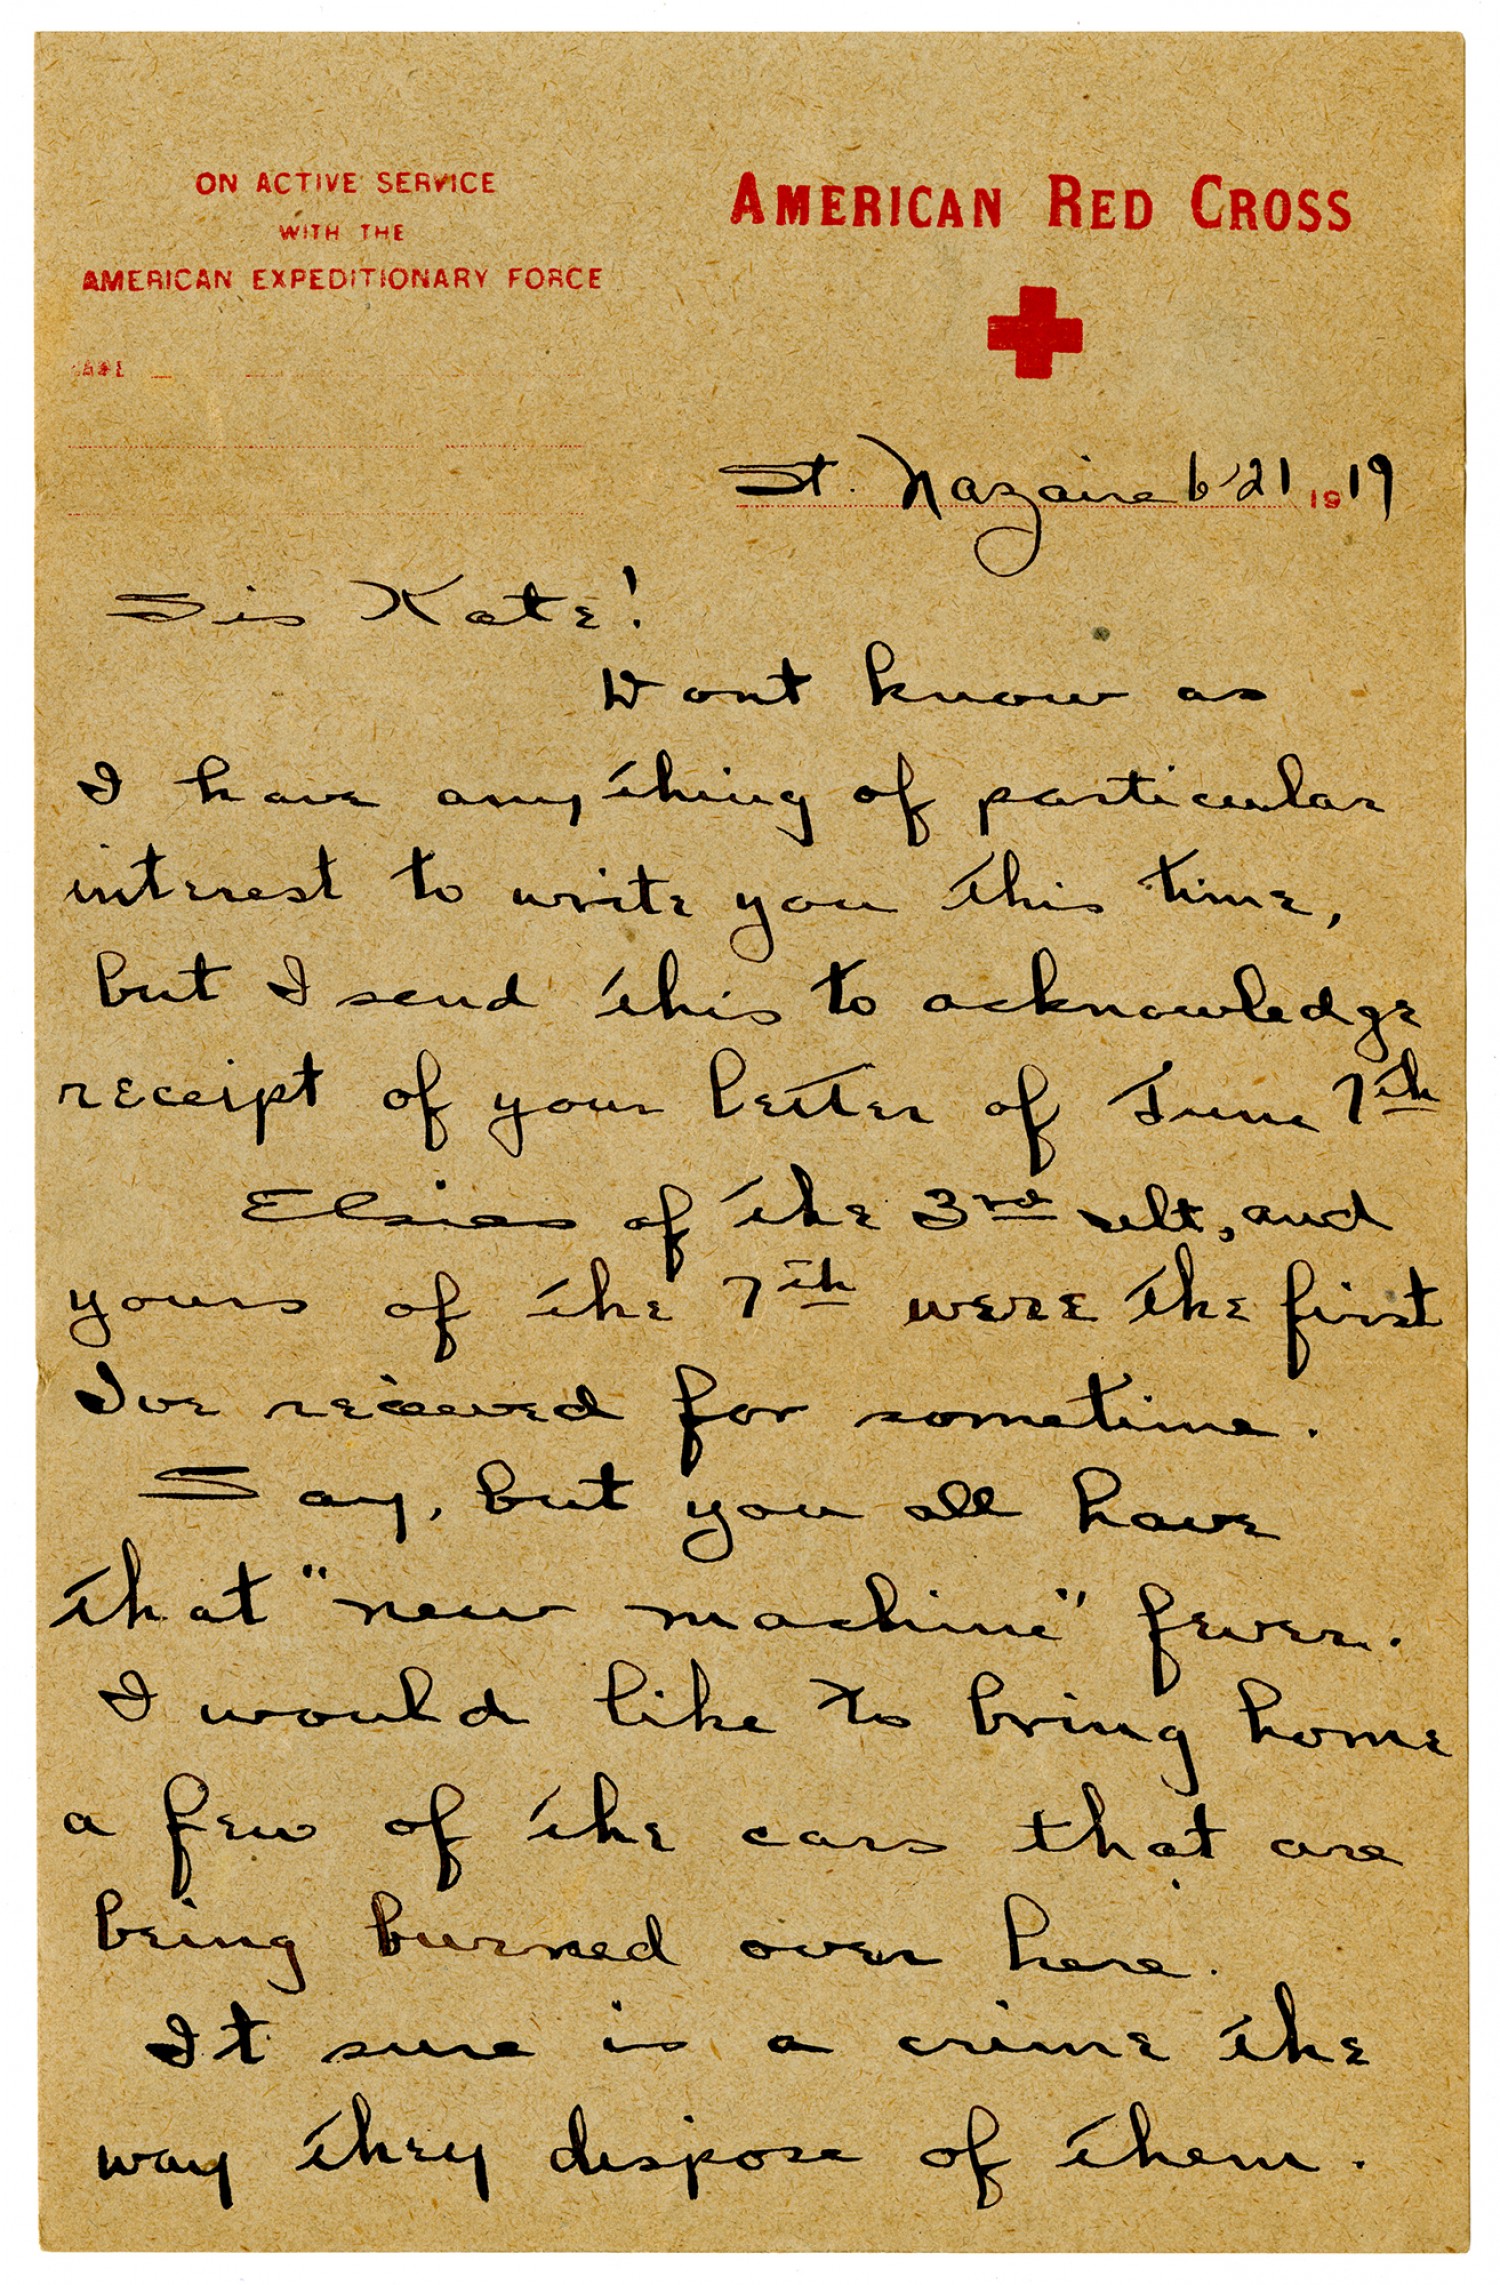 ON ACTIVE SERVICE
WITH THE
AMERICAN EXPEDITIONARY FORCE
AMERICAN RED CROSS
St. Nazaire 6-21 1919
Sis Kate!
Dont know as
I have anything of particular
interest to write you this time,
but I send this to acknowledge
receipt of your letter of June 7th
Elsies of the 3rd ult, and
yours of the 7th were the first
Ive received for sometime.
Say, but you all have
that "new machine" fever.
I would like to bring home
a few of the cars that are
being burned over here.
It sure is a crime the
way they dispose of them.